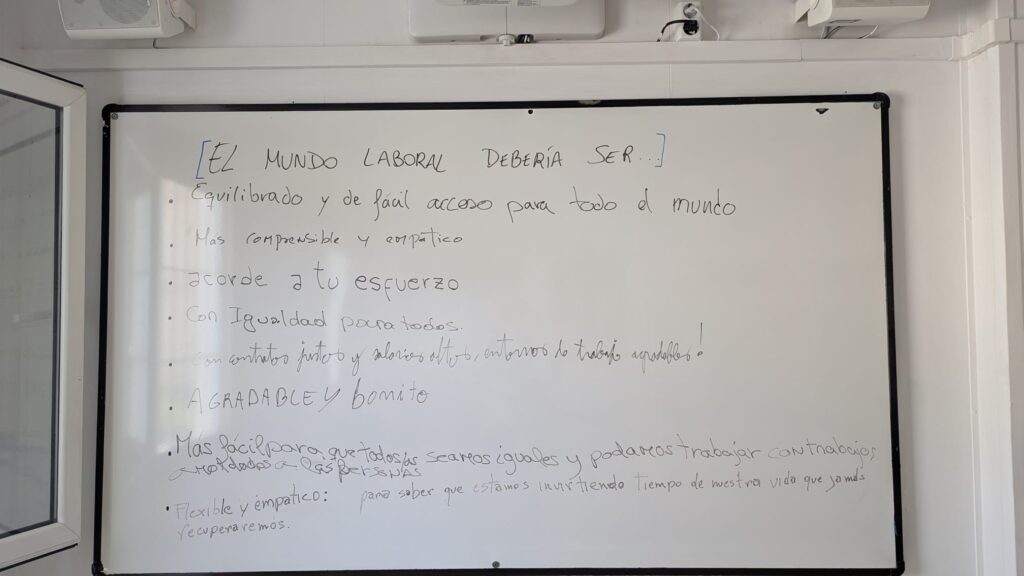 [EL MUNDO LABORAL DEBERÍA SER...]
• Equilibrado y de fácil acceso para todo el mundo
• Mas comprensible y empático
• acorde a tu esfuerzo
• Con Igualdad para todos.
• con contratos justos y salarios altos, entornos de trabajo agradables!
• AGRADABLE Y bonito
• Mas fácil para que todos/as seamos iguales y podamos trabajar con trabajos
amoldados a las personas
• Flexible y empático: para saber que estamos invirtiendo tiempo de nuestra vida que jamás
recuperaremos.